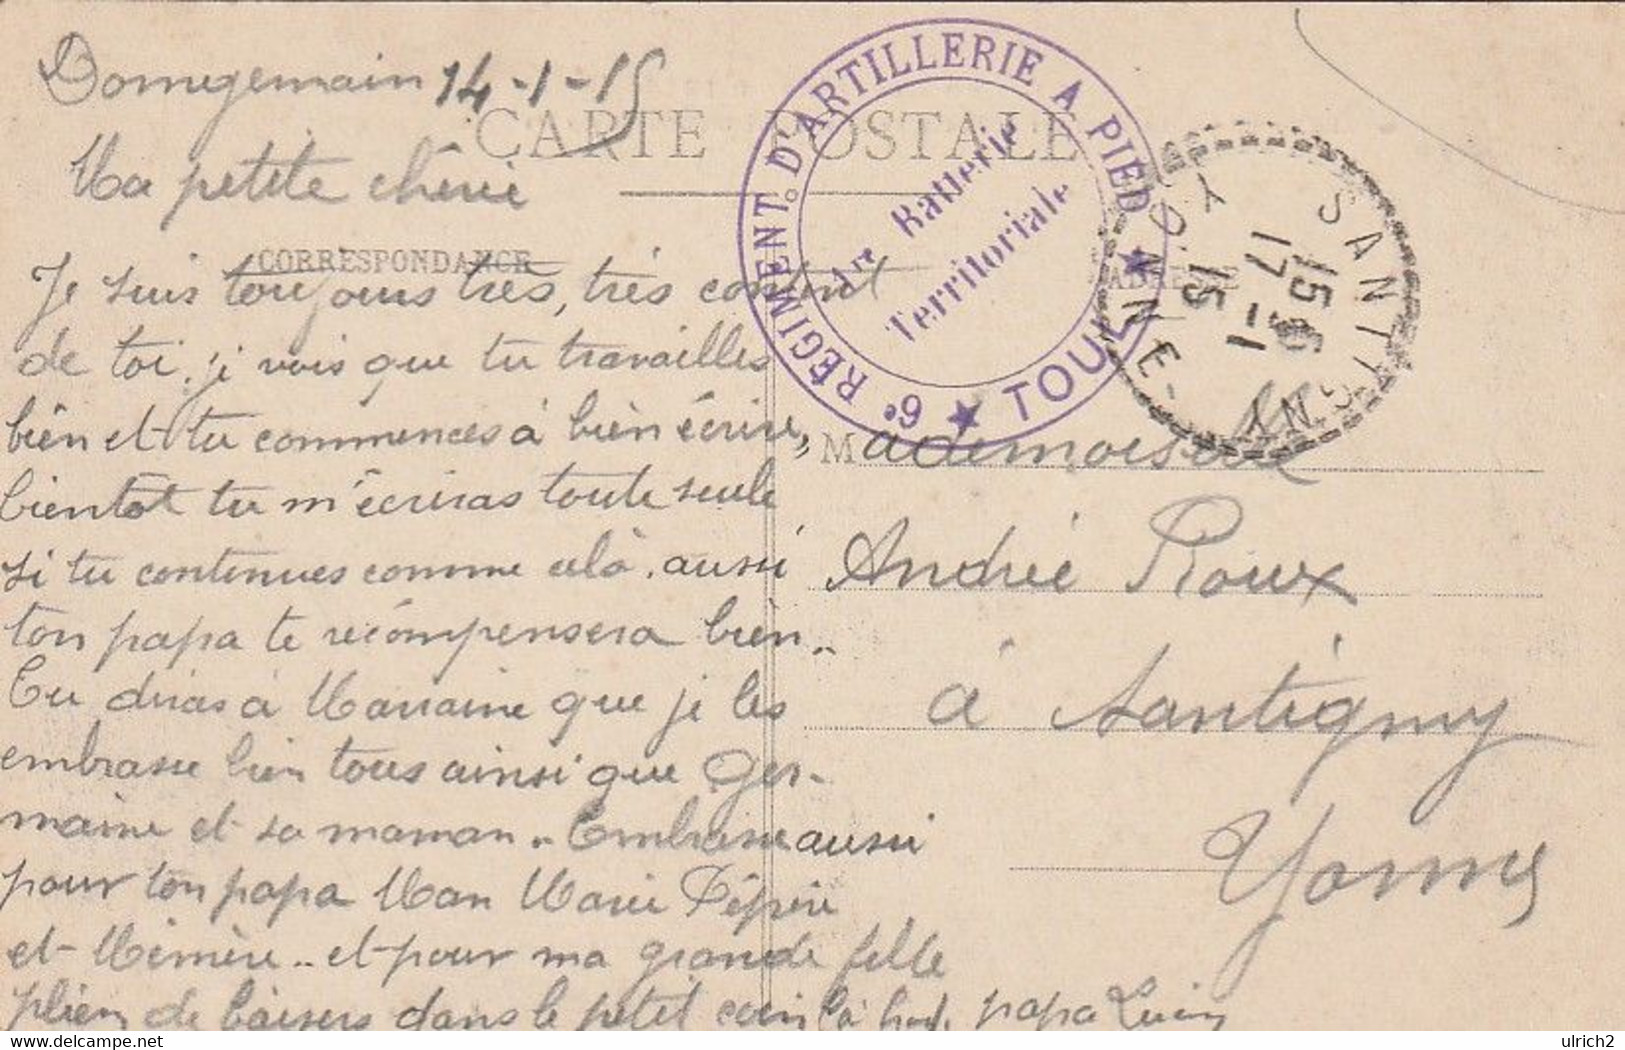 Domgermain 14-1-15
CARTE POSTALE
Ma petite chérie
CORRESPONDANCE
Je suis toujours très, très content
de toi, je vois que tu travailles
bien et tu commences à bien écrire,
bientôt tu m'écriras toute seule
si tu continues comme celà, aussi
ton papa te récompensera bien..
Tu diras à Marraine que je les
embrasse bien tous ainsi que Ger-
maine et sa maman.. Embrasse aussi
pour ton papa Man Marie Pépère
et Mémère.. et pour ma grande fille
plein de baisers dans le petit coin là papa Lucien
6e RÉGIMENT D'ARTILLERIE A PIED
★ TOUL ★
1re Batterie
Territoriale
15 35
17 -1
15
YONNE
ADRESSE
Mademoiselle
Andrée Roux
à Santigny
Yonne
ulrich2